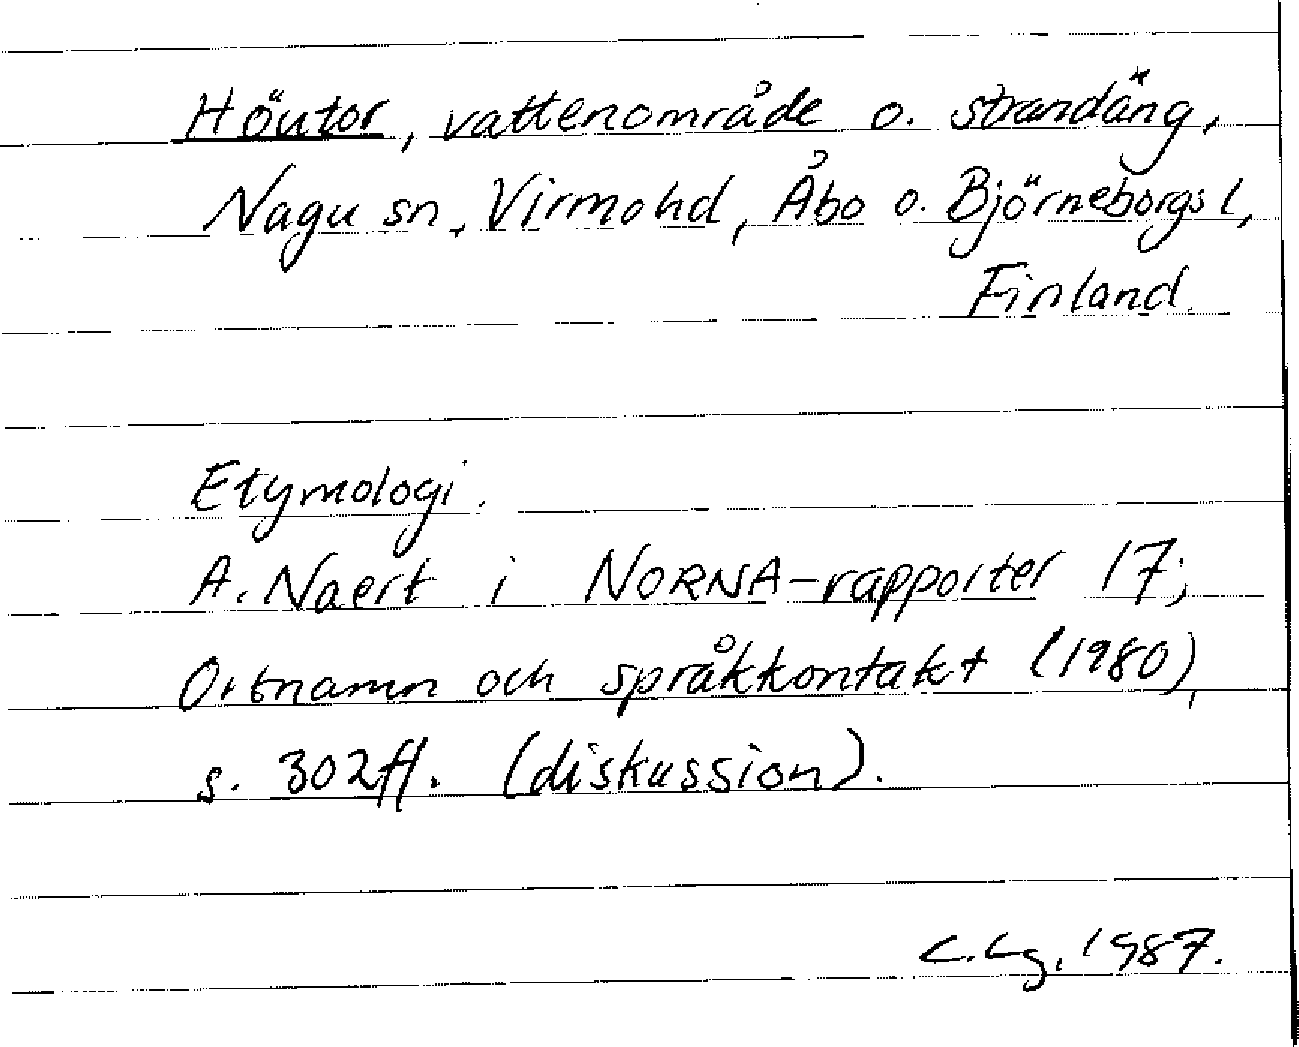 Höutor, vattenområde o. strandäng,
Nagu sn, Virmohd, Åbo o. Björneborgs l,
Finland.
Etymologi.
A. Naert i NORNA-rapporter 17;
Ortnamn och språkkontakt (1980),
s. 302ff. (diskussion).
C.Lg. 1987.